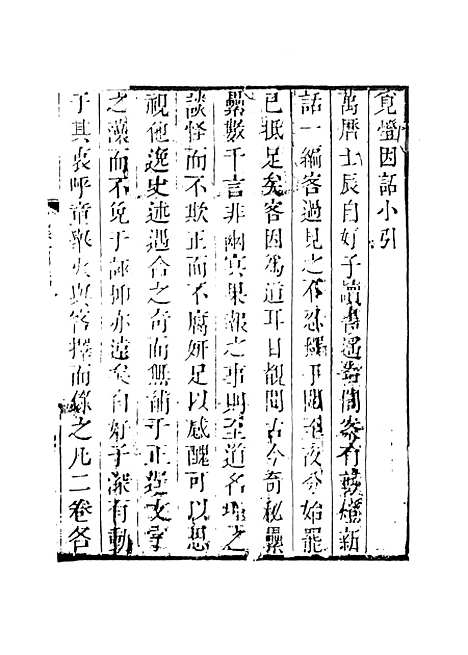 覓燈因話小引
萬曆壬辰自好子讀書遙青閣案有剪燈新
話一編客過見之不忍釋手閱至夜分始罷
已抵足矣客因為道耳目覩聞古今奇秘纍
纍數千言非幽冥果報之事則至道名理之
談怪而不欺正而不腐妍足以感醜可以思
視他逸史述遇合之奇而無補于正逞文字
之藻而不免于誣抑亦遠矣自好子深有動
于其衷呼童舉火與客擇而錄之凡二卷各